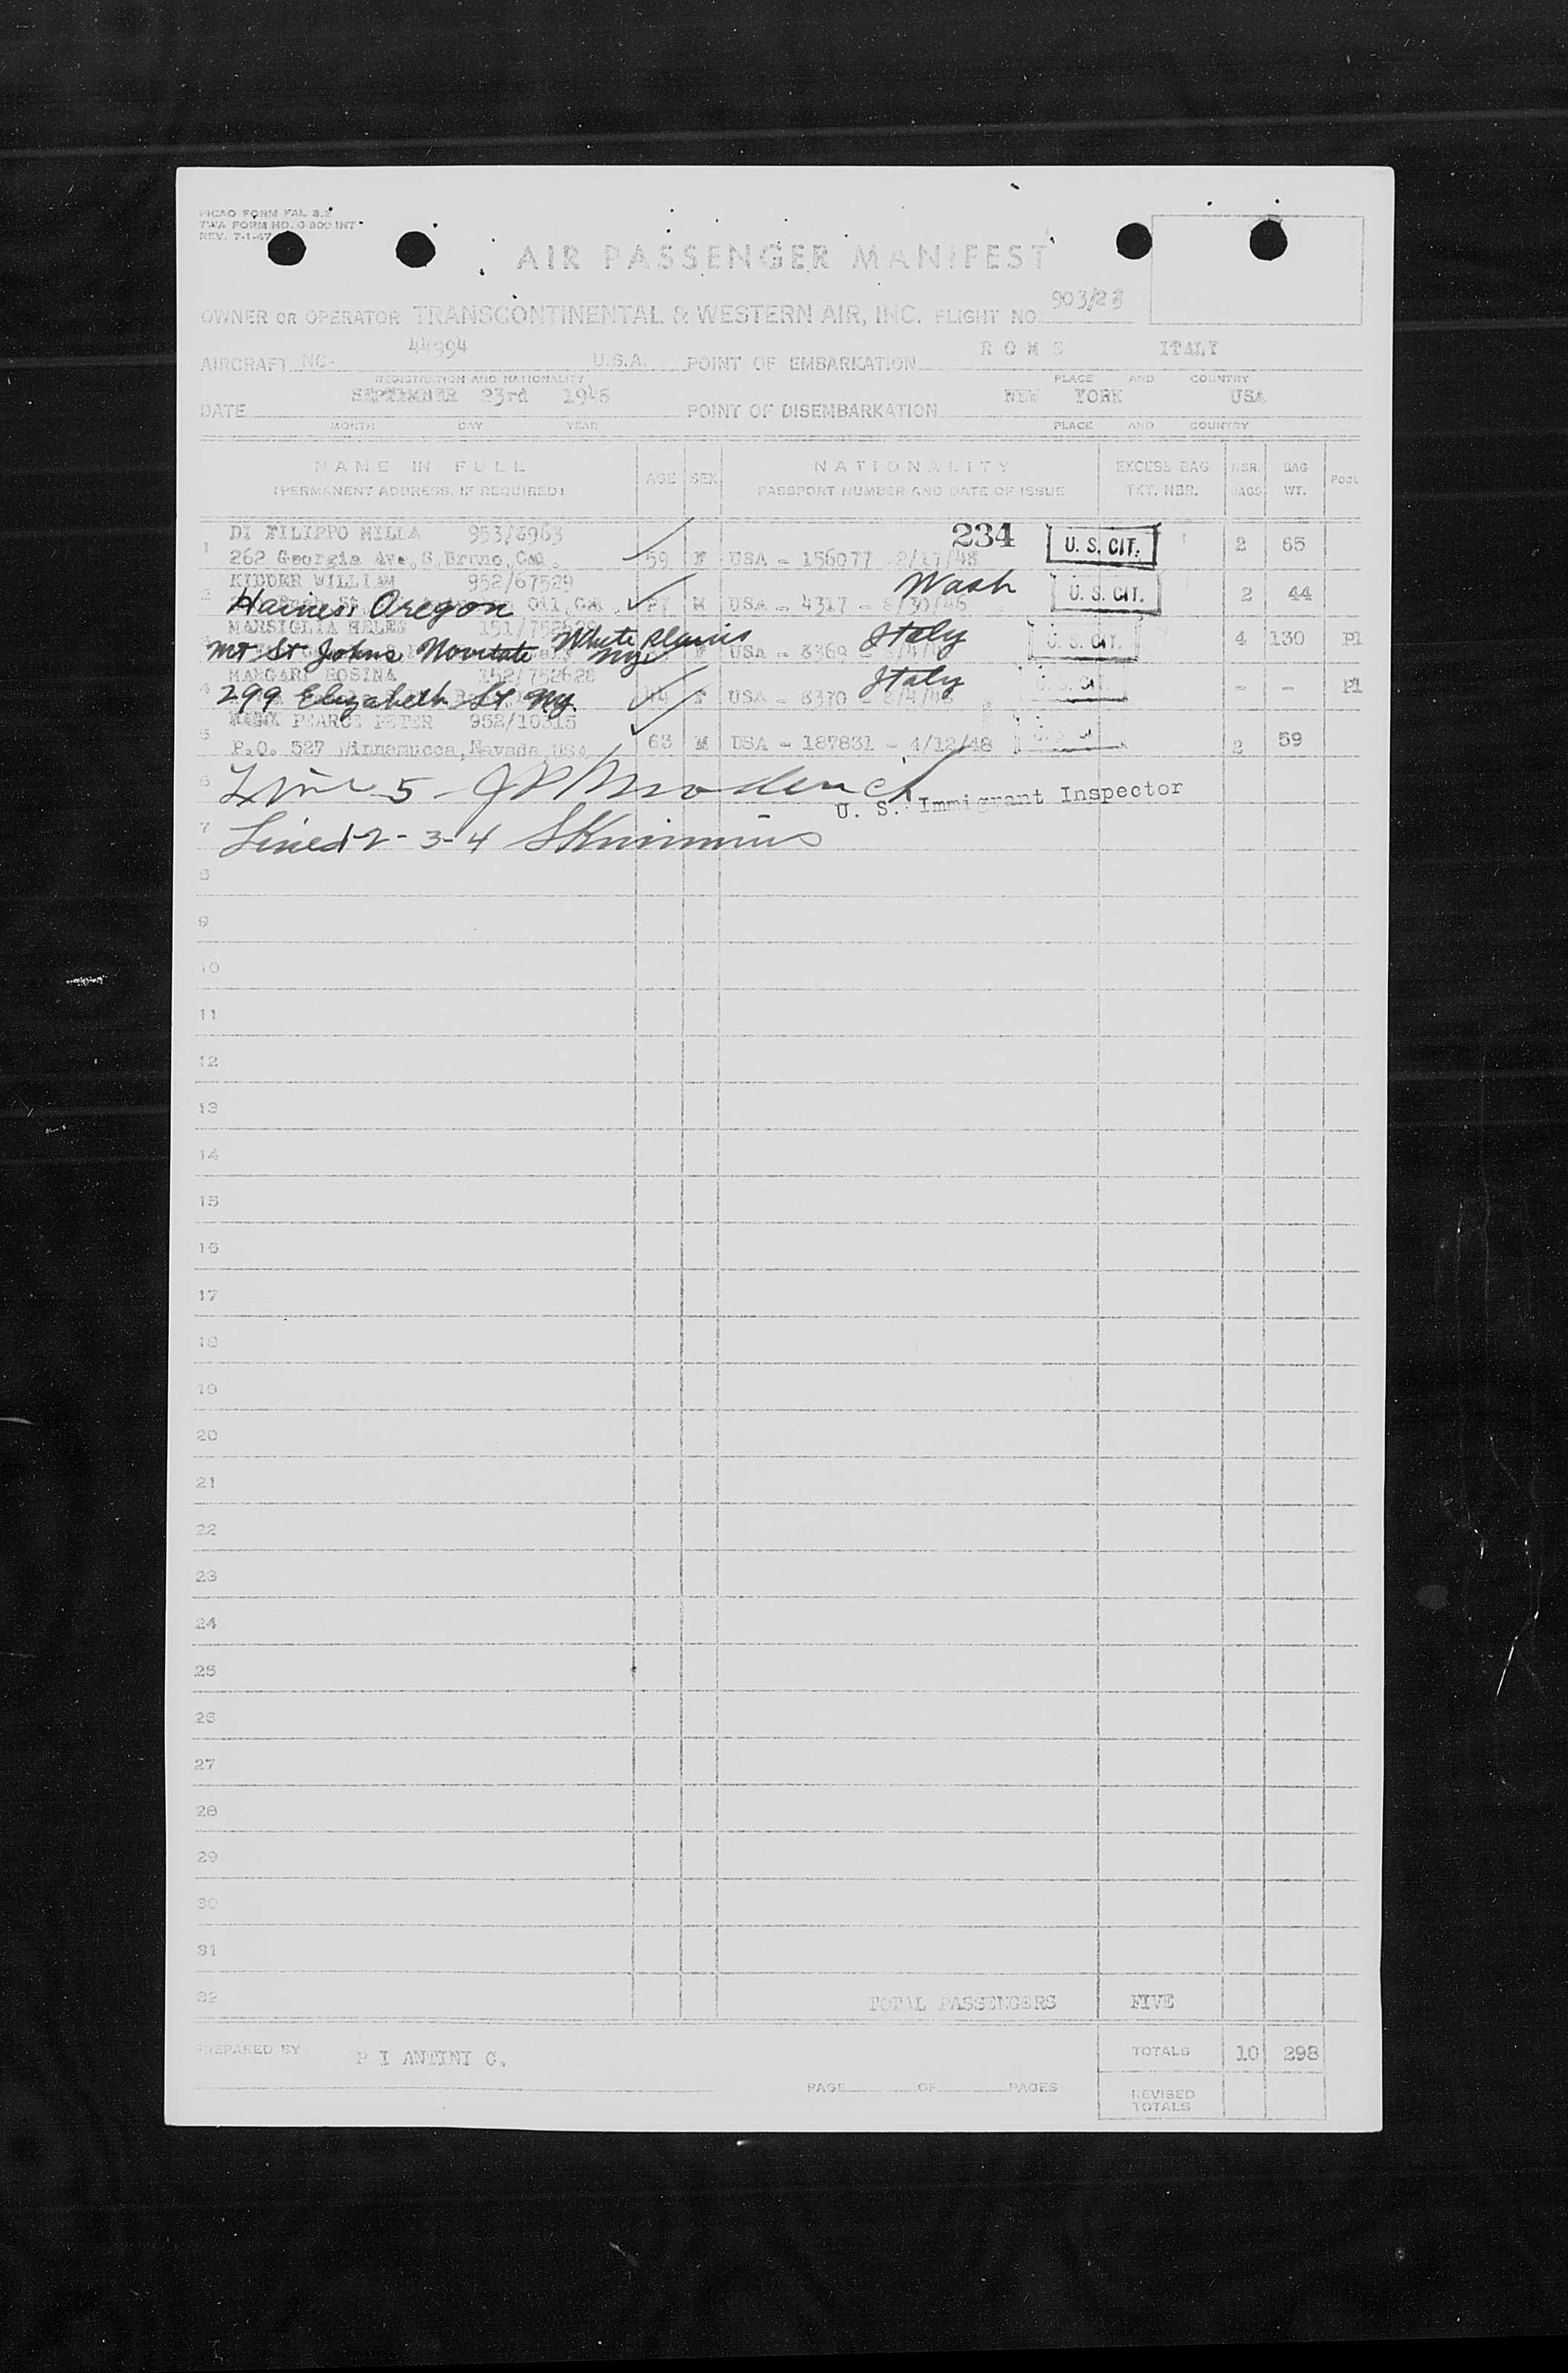 PICAO FORM FAL 3.2
TWA FORM NO. O-800 INT
REV. 7-1-47
AIR PASSENGER MANIFEST
OWNER OR OPERATOR TRANSCONTINENTAL & WESTERN AIR, INC. FLIGHT NO. 903/23
AIRCRAFT NC- 44994 U.S.A. POINT OF EMBARKATION R O M E ITALY
REGISTRATION AND NATIONALITY PLACE AND COUNTRY
DATE SEPTEMBER 23rd 1948 POINT OF DISEMBARKATION NEW YORK USA
MONTH DAY YEAR PLACE AND COUNTRY
NAME IN FULL AGE SEX NATIONALITY EXCESS BAG NBR. BAG POOL
(PERMANENT ADDRESS, IF REQUIRED) PASSPORT NUMBER AND DATE OF ISSUE TKT. NBR. BAGS WT.
DI FILIPPO MILLA 953/6963 234 U. S. CIT.
1 262 Georgia Ave. S. Bruno, Cal. 59 F USA - 156077 2/17/48 2 65
KIDDER WILLIAM 952/67529 Wash U. S. CIT.
2 Haines, Oregon 27 M USA - 4317 - 8/30/46 2 44
MARSIGLIA HELEN 151/752628 White plains Italy U. S. CIT.
Mt St Johns Novitate NY F USA - 8369 4 130 Pl
MANGARI ROSINA 152/752628 Italy
4 299 Elizabeth St. NY. 44 F USA - 8370 - 8/4/48 - - Pl
PEARCE PETER 952/10315
5 P.O. 527 Winnemucca, Nevada USA 63 M USA - 187831 - 4/12/48 2 59
6 Line 5 -
U. S. Immigrant Inspector
7 Lines 1-2-3-4
8
9
10
11
12
13
14
15
16
17
18
19
20
21
22
23
24
25
26
27
28
29
30
31
32 TOTAL PASSENGERS FIVE
PREPARED BY P I ANTINI C. TOTALS 10 298
PAGE OF PAGES
REVISED
TOTALS